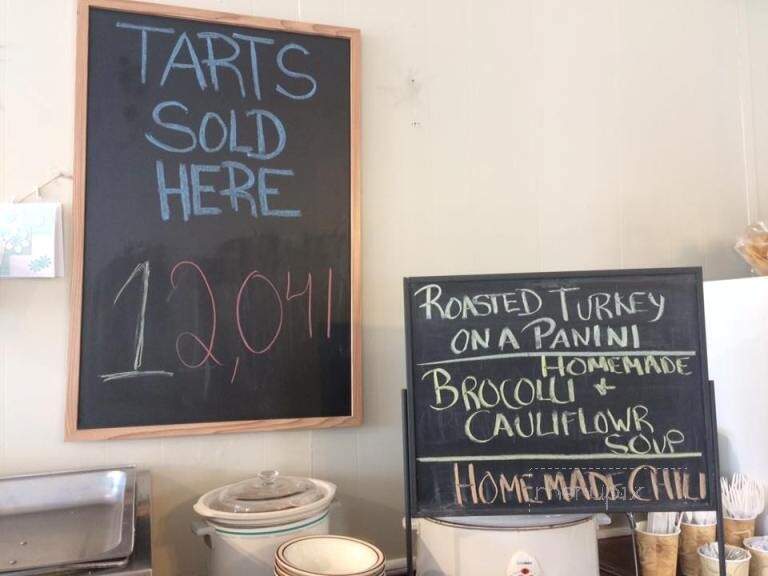 TARTS
SOLD
HERE
12,041
ROASTED TURKEY
ON A PANINI
HOMEMADE
BROCOLLI +
CAULIFLOWR
SOUP
HOMEMADE CHILI
menupix